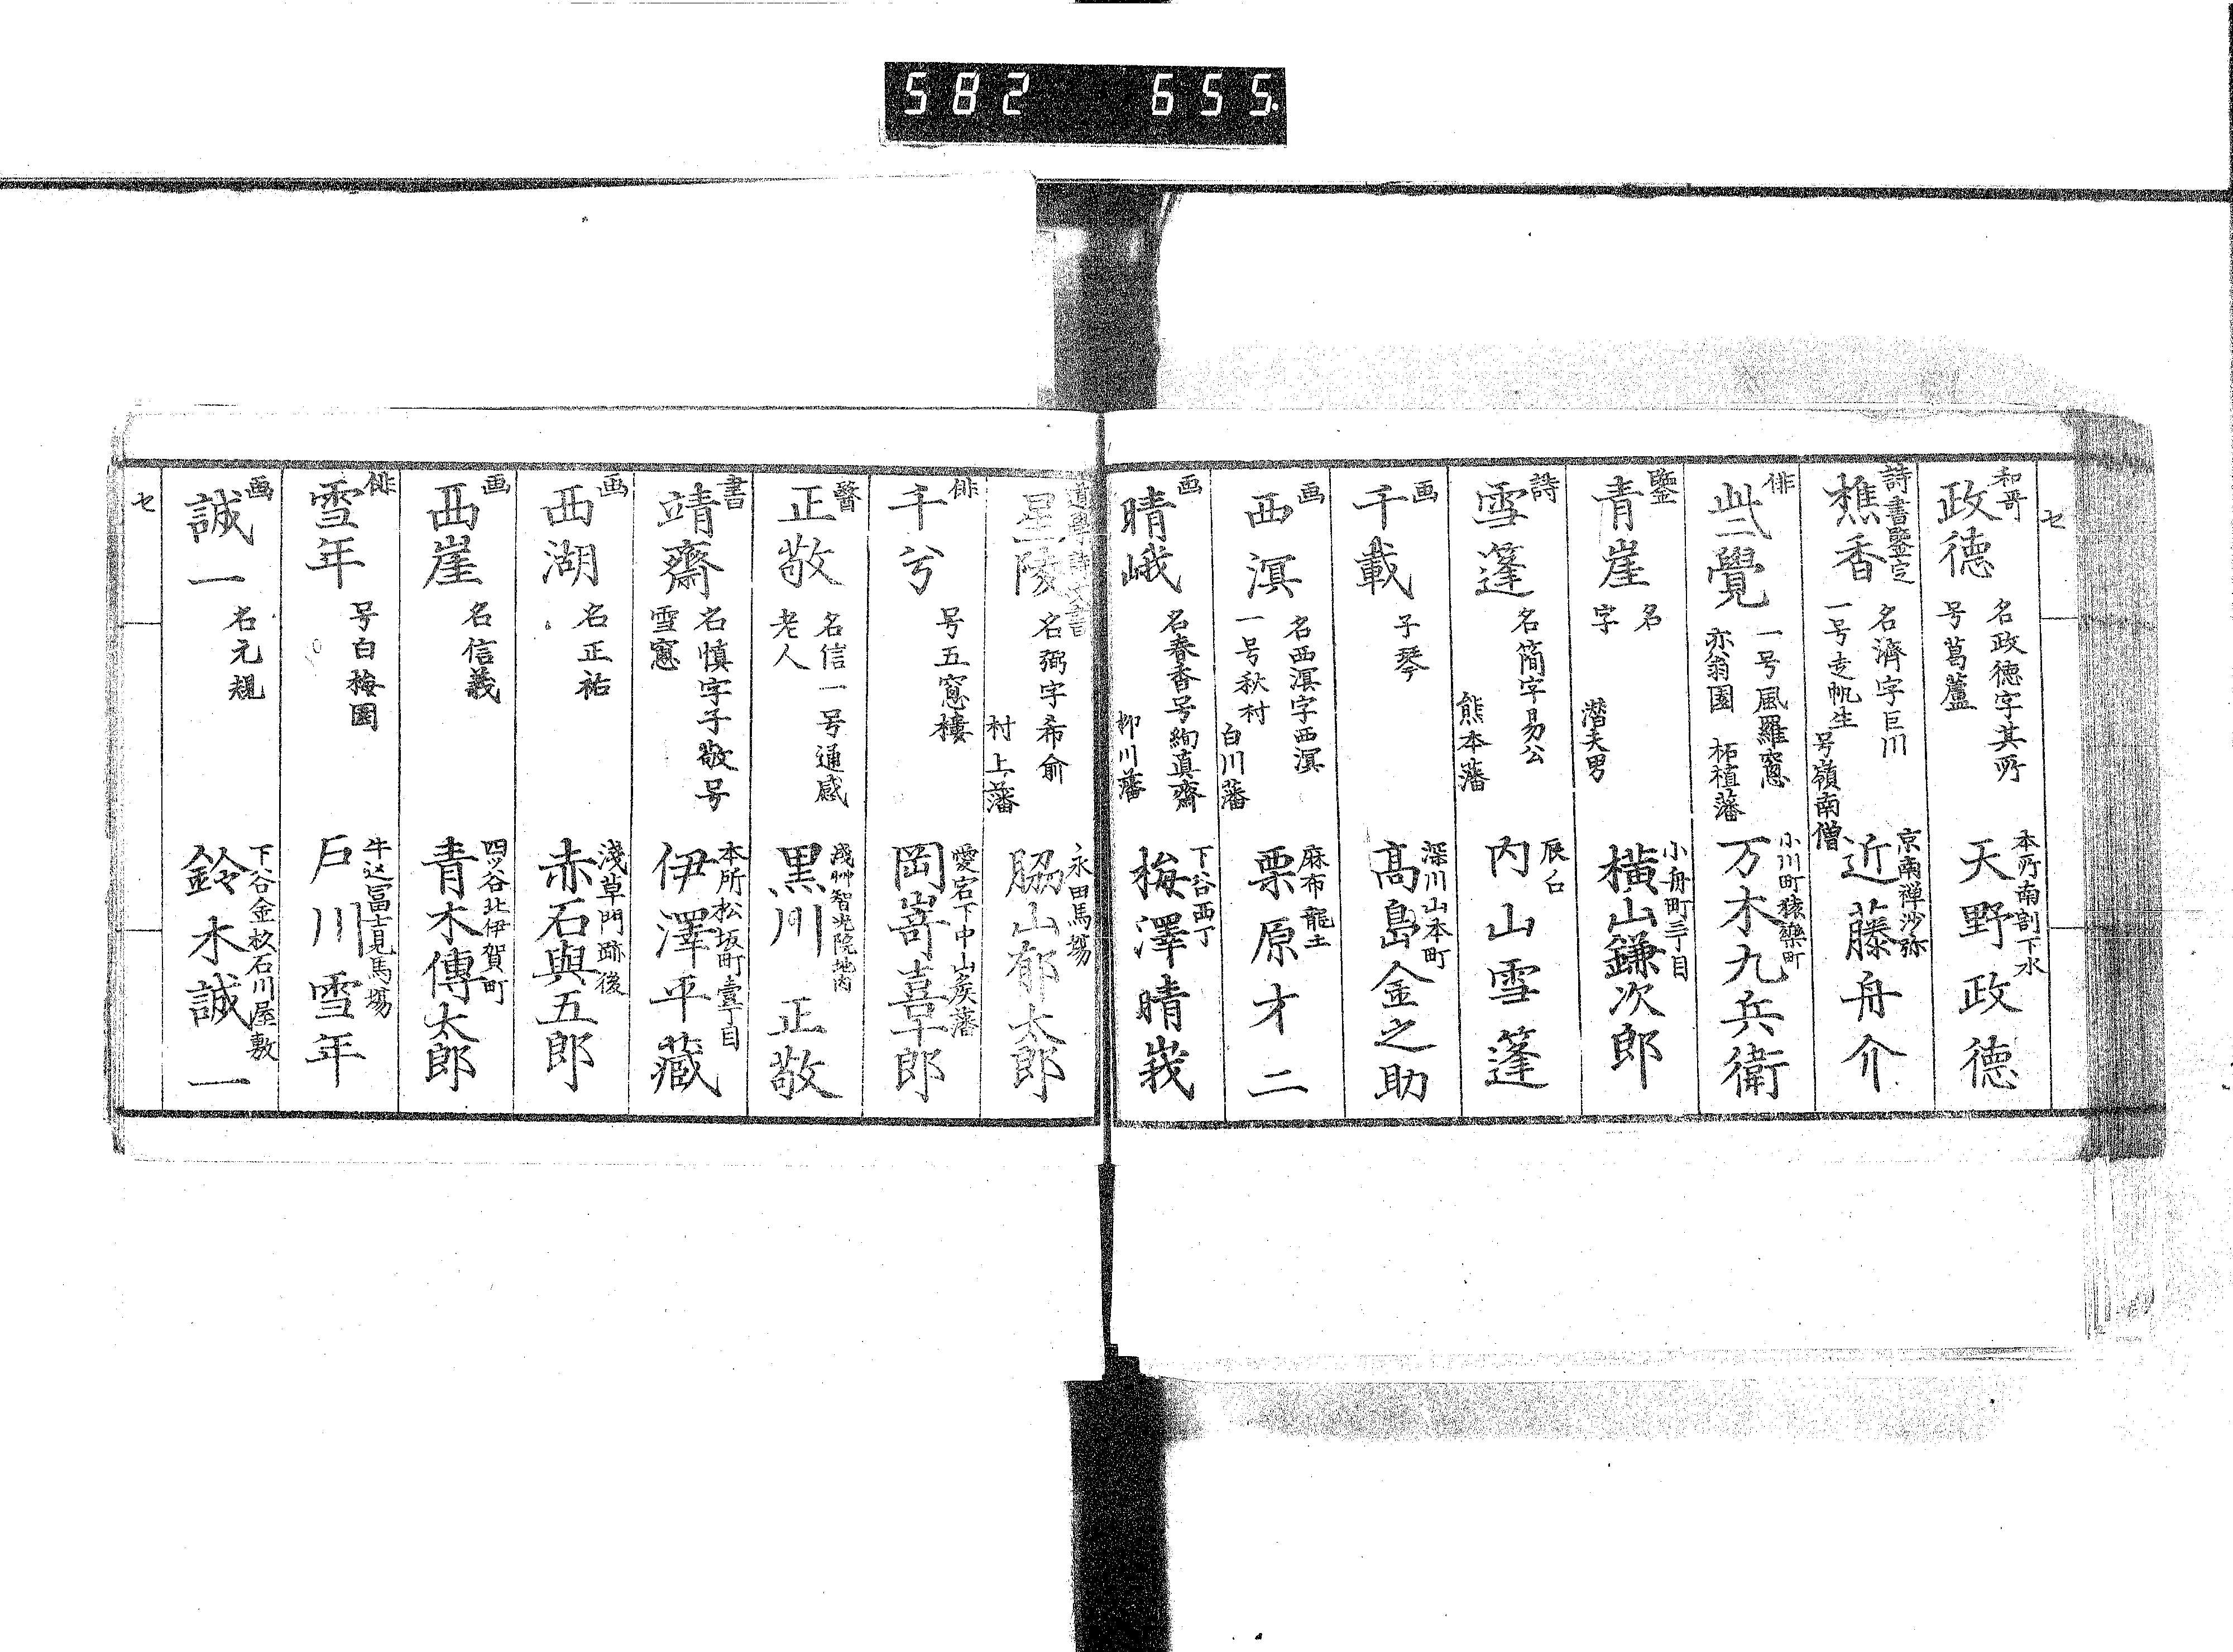 582 655.
セ
和哥
政德
名政德字其所
号葛蘆
本所南割下水
天野政德
詩書鑒定
樵香
名濟字巨川
一号走帆生
号嶺南僧
京南禅沙弥
近藤舟介
俳
覺
一号風羅窻
亦翁園
柘植藩
小川町猿樂町
万木九兵衛
鑒
青崖
名
字
潜夫男
小舟町三丁目
橫山鎌次郎
詩
雪篷
名簡字易公
熊本藩
辰ノ口
内山雪篷
画
千載
子琴
深川山本町
髙島金之助
画
西溟
名西溟字西溟
一号秋村
白川藩
麻布龍土
栗原才二
画
晴峨
名春香号絢真齋
柳川藩
下谷西丁
梅澤晴峩
道學詩文書
星陵
名弼字希俞
村上藩
永田馬塲
脇山郁太郎
俳
千兮
号五窓樓
愛宕下中山矦藩
岡嵜喜十郎
醫
正敬
名信一号通感
老人
浅艸智光院地内
黒川正敬
書
靖齋
名慎字子敬号
雪窻
本所松坂町壹丁目
伊澤平藏
画
西湖
名正祐
淺草門跡後
赤石與五郎
画
西崖
名信義
四ツ谷北伊賀町
青木傳太郎
俳
雪年
号白梅園
牛込冨士見馬塲
戸川雪年
画
誠一
名元規
下谷金杉石川屋敷
鈴木誠一
セ